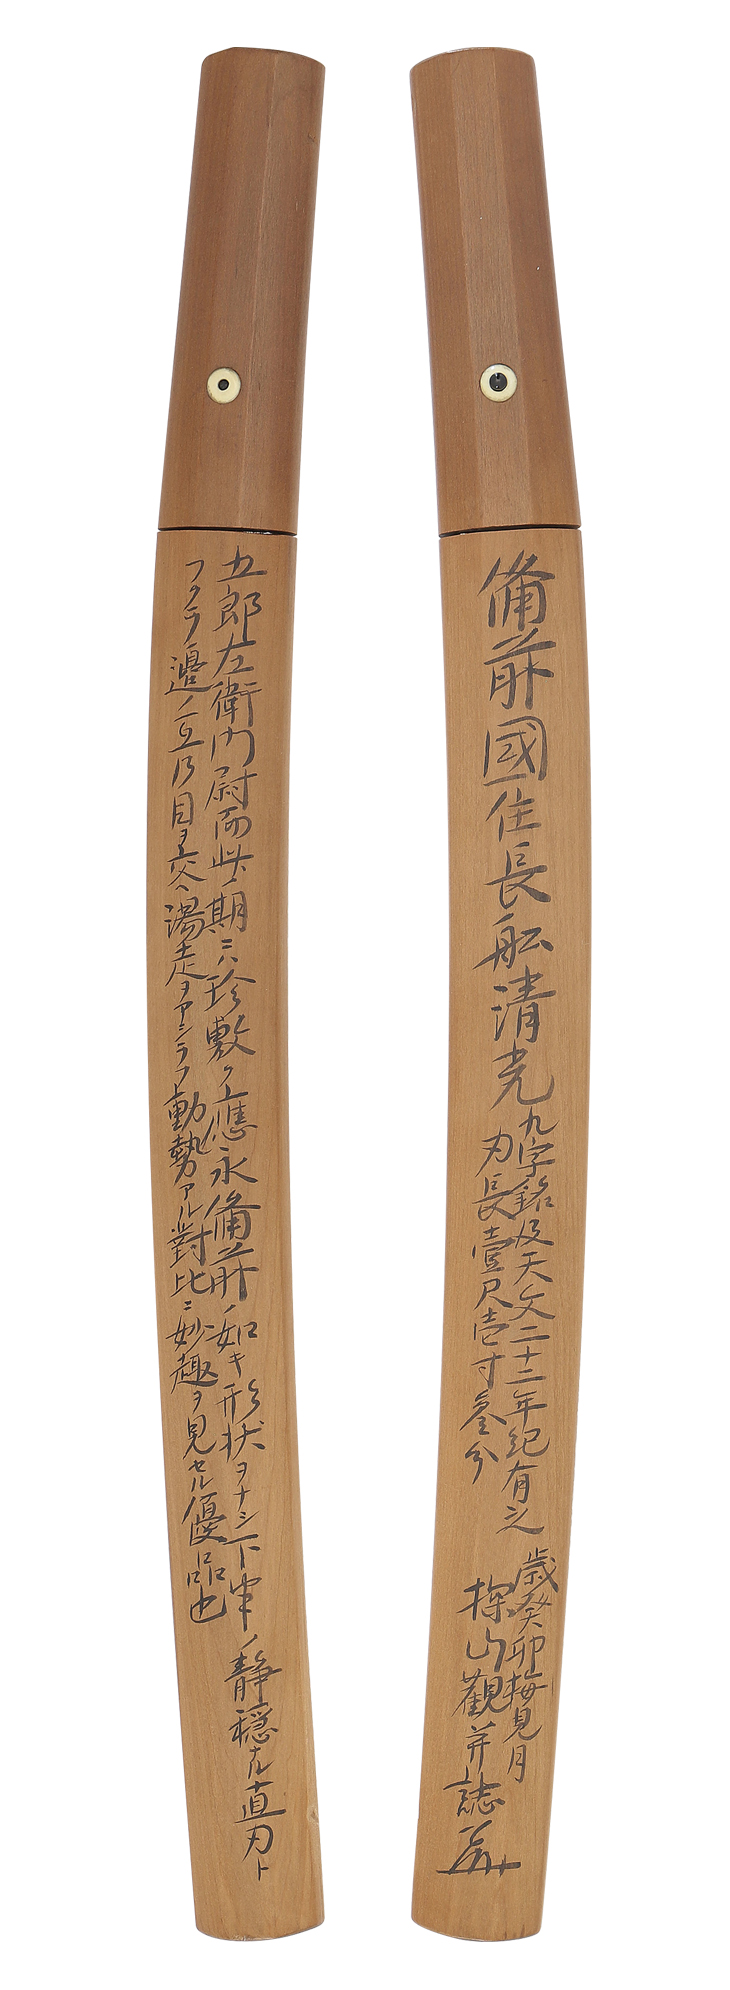 備前國住長船清光
九字銘及天文二十二年紀有之
刃長壹尺壱寸参分
歳癸卯梅見月
探山觀并誌
五郎左衛門尉而此期ニハ珍敷ク應永備前ノ如キ形状ヲナシ下半ノ静穏ナル直刃ト
フクラ邊ノ互乃目ヲ交ヘ湯走ヲアシラフ動勢アル對比ニ妙趣ヲ見セル優品也